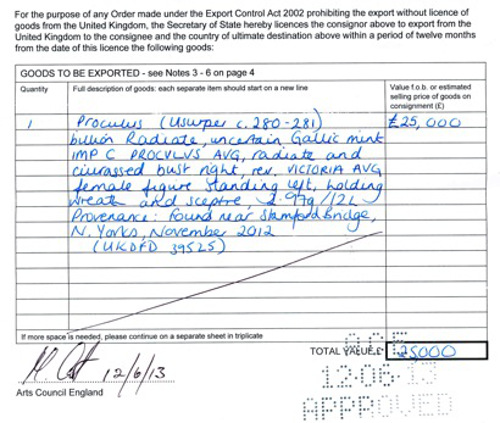 For the purpose of any Order made under the Export Control Act 2002 prohibiting the export without licence of
goods from the United Kingdom, the Secretary of State hereby licences the consignor above to export from the
United Kingdom to the consignee and the country of ultimate destination above within a period of twelve months
from the date of this licence the following goods:
GOODS TO BE EXPORTED - see Notes 3 - 6 on page 4
Quantity Full description of goods: each separate item should start on a new line Value f.o.b. or estimated
selling price of goods on
consignment (£)
1 Proculus (Usurper c. 280-281) £25,000
billon Radiate, uncertain Gallic mint
IMP C PROCVLVS AVG, radiate and
cuirassed bust right, rev. VICTORIA AVG
female figure standing left, holding
wreath and sceptre, 2.97g/12h
Provenance: Found near Stamford Bridge,
N. Yorks, November 2012
(UKDFD 39525)
If more space is needed, please continue on a separate sheet in triplicate
TOTAL VALUE £ 25000
12/6/13
Arts Council England
12·06·13
APPROVED